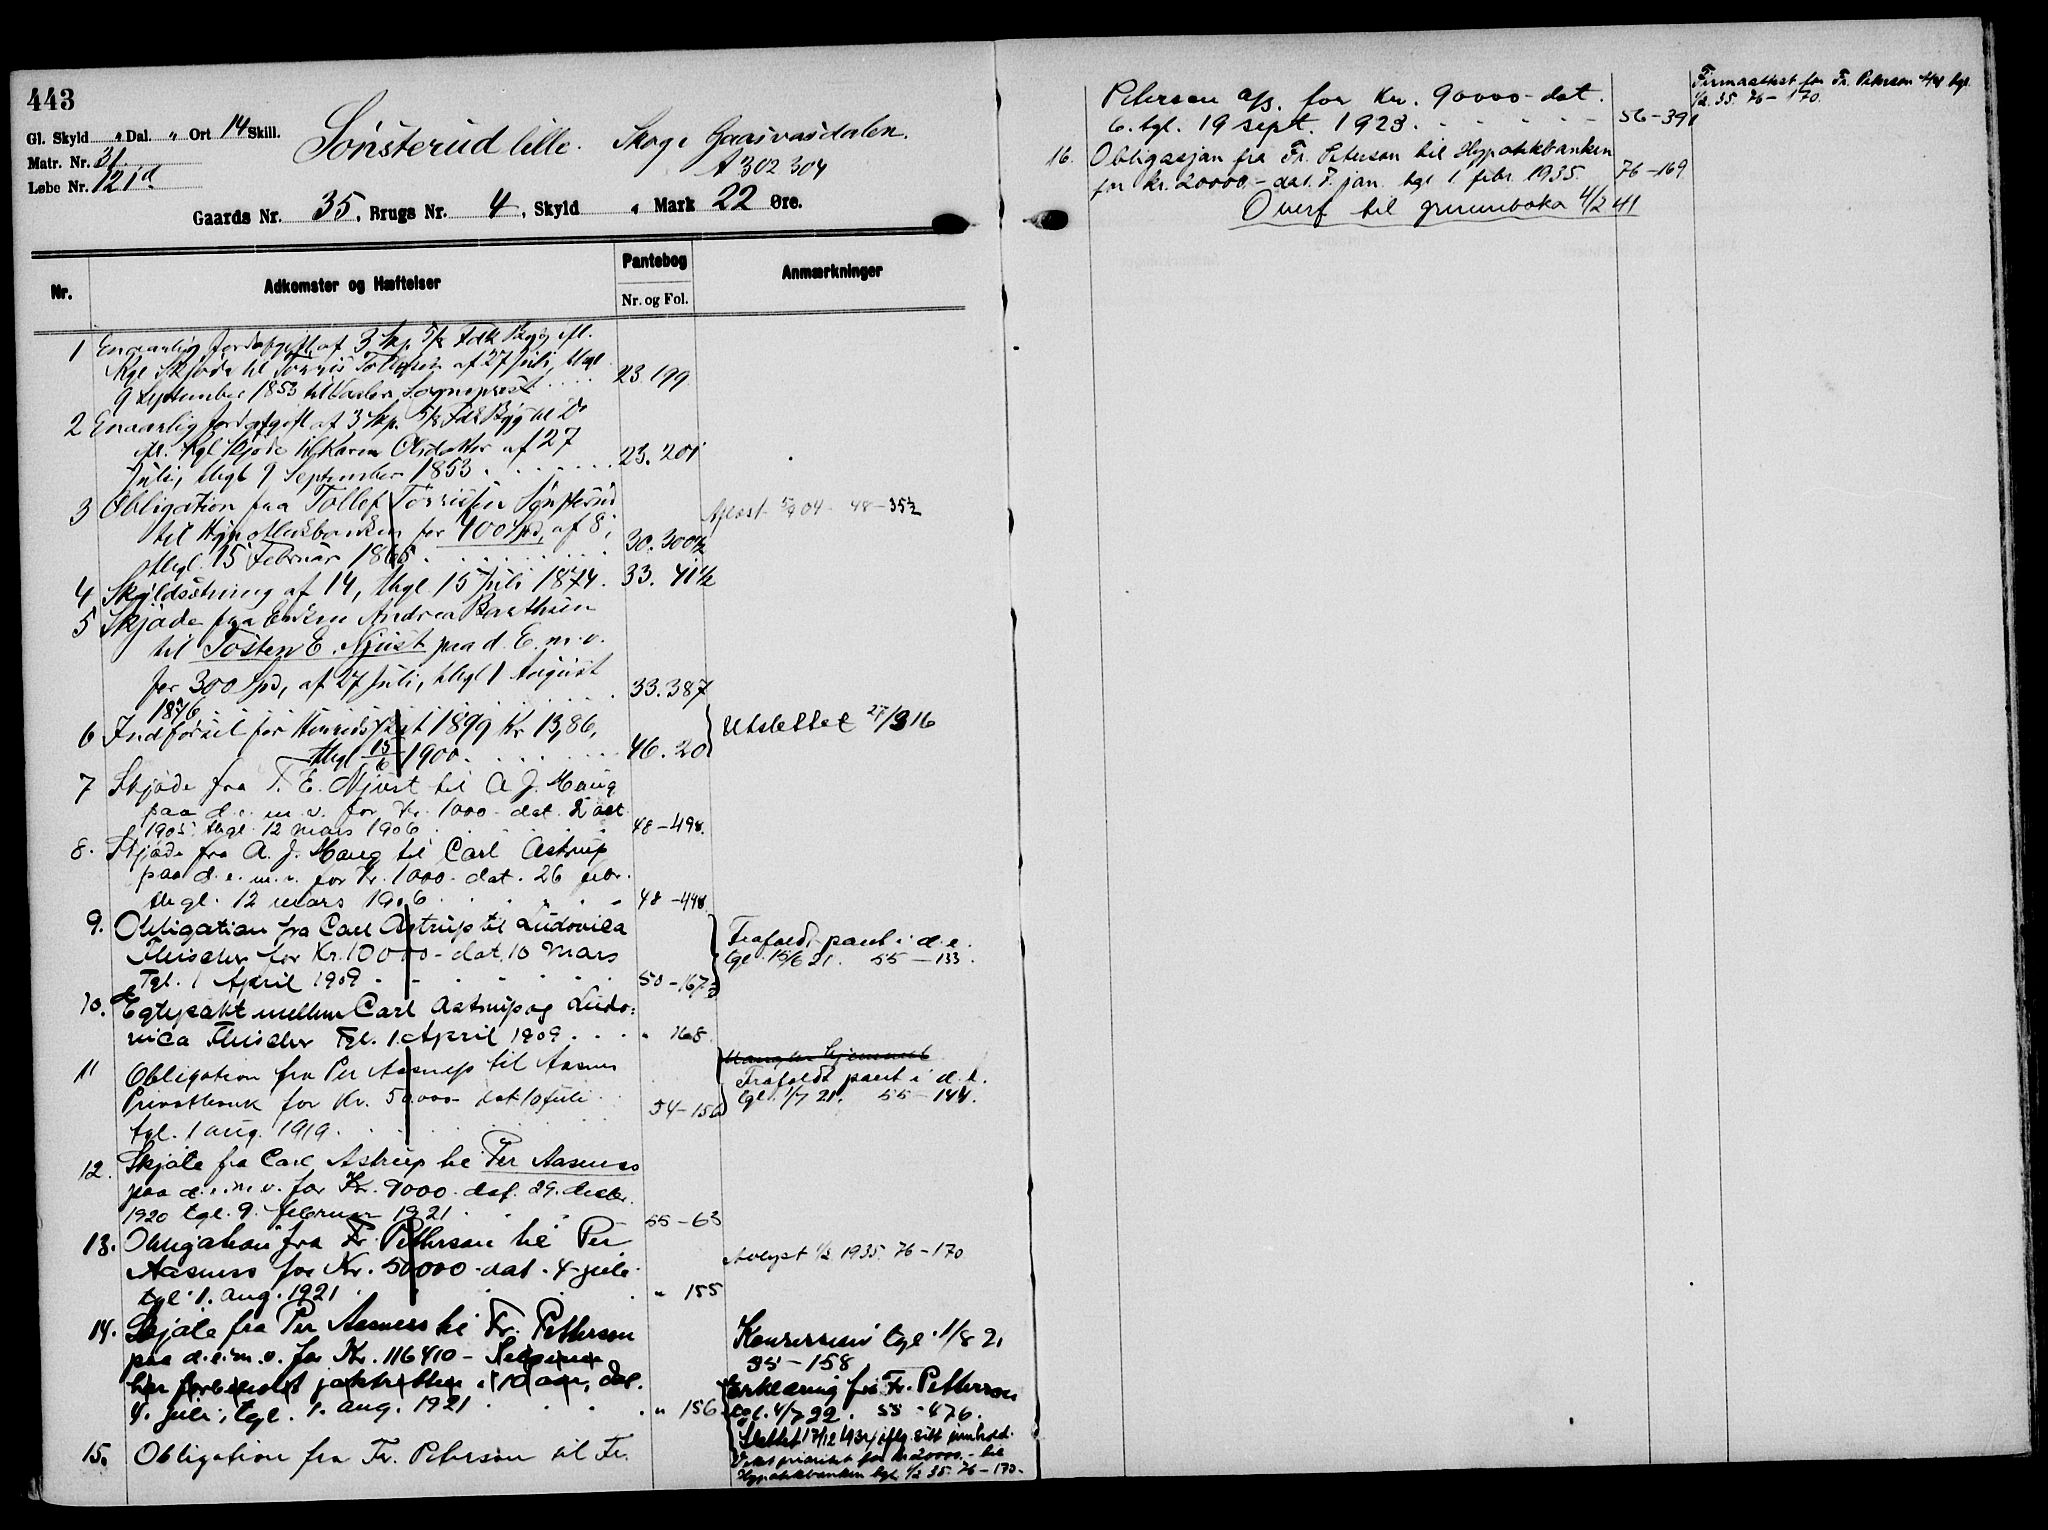 443
Gl. Skyld " Dal. " Ort 14 Skill.
Matr. Nr. 31.
Løbe Nr. 121d.
Sønsterud lille. Skoge Gaasvasdalen.
A 302 304
Gaards Nr. 35, Brugs Nr. 4, Skyld " Mark 22 Øre.
Nr.
Adkomster og Hæftelser
Pantebog
Nr. og Fol.
Anmærkninger
1 Enaarlig Jordafgift af 3 Skp. 5/8 Fdk Byg ifl.
Kgl Skjøde til Torris Tollefsen af 27 Juli, thgl
9 September 1853 til Sognepræst 23.199
2 Enaarlig Jordafgift af 3 Skp. 5/8 Fdk Byg til Do
ifl. Kgl Skjøde til Karen Olsdatter af 27
Juli, thgl 9 September 1853 23.201
3 Obligation fra Tollef Torrissen Sønsterud
til Hypothekbanken for 400 Spd, af 8,
thgl. 15 Februar 1865 30.300½
Aflæst 04 - 48 - 352
4 Skyldsætning af 14, thgl 15 Juli 1874. 33.41½
5 Skjøde fra Enken Andrea Barthun
til Tosten E. Njust paa d. E. m. v.
for 300 Spd, af 27 Juli, thgl 1 August
1876 33.387
6 Indførsel for 1899 Kr 13,86,
thgl 15/6 1900 46.20
Utslettet 27/3 16
7 Skjøde fra T. E. Njust til A. J. Haug
paa d. e. m. v. for Kr. 1000 - dat.
1905, thgl. 12 mars 1906 48-498.
8. Skjøde fra A. J. Haug til Carl Astrup
paa d. e. m. v. for Kr. 1000 - dat. 26 febr.
thgl. 12 mars 1906 48-498
9. Obligation fra Carl Astrup til Ludovica
Fleischer for Kr. 10000 - dat. 10 Mars
Tgl. 1 April 1909 50-167
Frafaldt pant i d. e.
tgl 15/6 21. 55 - 133.
10. Egtepakt mellem Carl Astrup og Ludo-
vica Fleischer Tgl. 1. April 1909 " 168
11 Obligation fra Per Aasness til Aasnes
Privatbank for Kr. 50000 - dat 10 juli
tgl. 1 aug. 1919. 54-156
Mangler hjemmel
Frafaldt pant i d. e.
tgl. 1/7 21. 55 - 144.
12. Skjøte fra Carl Astrup til Per Aasness
paa d. e. m. v. for Kr. 9000 - dat. 29. decbr.
1920 tgl. 9. februar 1921 55-63
13. Obligation fra Fr. Petterson til Per
Aasness for Kr. 50000 - dat. 4 juli
tgl. 1. aug. 1921 " 155
Avlyst 1/2 1935. 76-170
14. Skjøte fra Per Aasness til Fr. Petterson
paa d. e. m. v. for Kr. 116410 - Selgeren
har forbeholdt jaktretten i 10 aar, dat.
4. juli, tgl. 1. aug. 1921 " 156
Konsession tgl. 1/8 21
55-158
Erklæring fra Fr. Petterson
tgl. 4/7 22. 55 - 476.
Slettet 17/12 1934 iflg. sitt innhold.
15. Obligation fra Fr. Peterson til Fr.
Veks prioritet for kr. 20000 - til
Hypotekbanken tgl. 1/2 35. 76-170.
Peterson a/s. for Kr. 90000 - dat.
6. tgl. 19 sept. 1923. 56-391
Firmaattest for Fr. Peterson tgl.
1/2 35. 76-170.
16. Obligasjon fra Fr. Peterson til Hypotekbanken
for kr. 20000. - dat. 7. jan. tgl 1. febr. 1935. 76-169
Overf til grunnboka 4/2 41